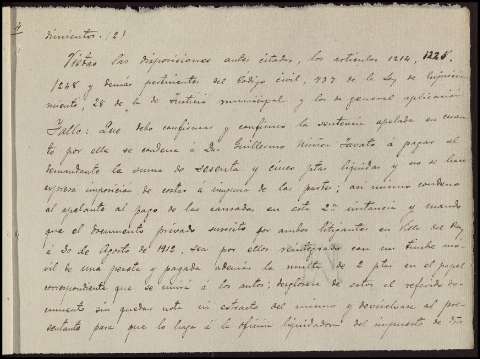 dimientos. (2)
Vistas las disposiciones antes citadas, los artículos 1214, 1225,
1248 y demás pertinentes del Código civil, 737 de la Ley de Enjuicia-
miento, 28 de la de Justicia municipal y los de general aplicación
Fallo: Que debo confirmar y confirmo la sentencia apelada en cuan-
to por ella se condena á Dn. Guillermo á pagar al
demandante la suma de sesenta y cinco ptas líquidas y no se hace
expresa imposición de costas á ninguna de las partes; así mismo condeno
al apelante al pago de las causadas en esta 2ª instancia y mando
que el documento privado suscrito por ambos litigantes en
á de Agosto de 1912, sea por ellos reintegrado con un timbre mó-
vil de una peseta y pagada además la multa de 2 ptas en el papel
correspondiente que se unirá á los autos; desglosese de estos el referido do-
cumento sin quedar nota ni extracto del mismo y devuelvase al pre-
sentante para que lo haga á la oficina liquidadora del impuesto de